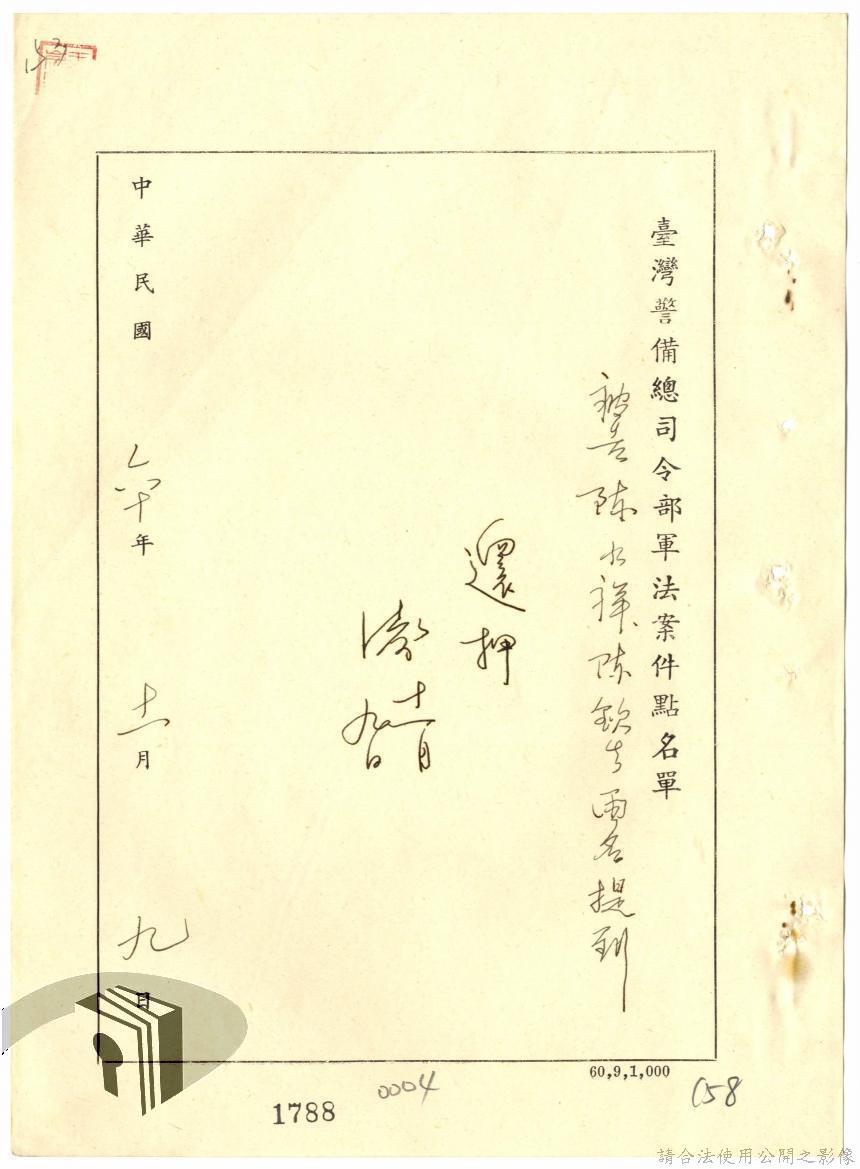 臺灣警備總司令部軍法案件點名單
被告陳水祥陳欽生兩名提到
還押
十一月
九日
中華民國六十年十一月九日
60,9,1,000
0004
1788
158
請合法使用公開之影像